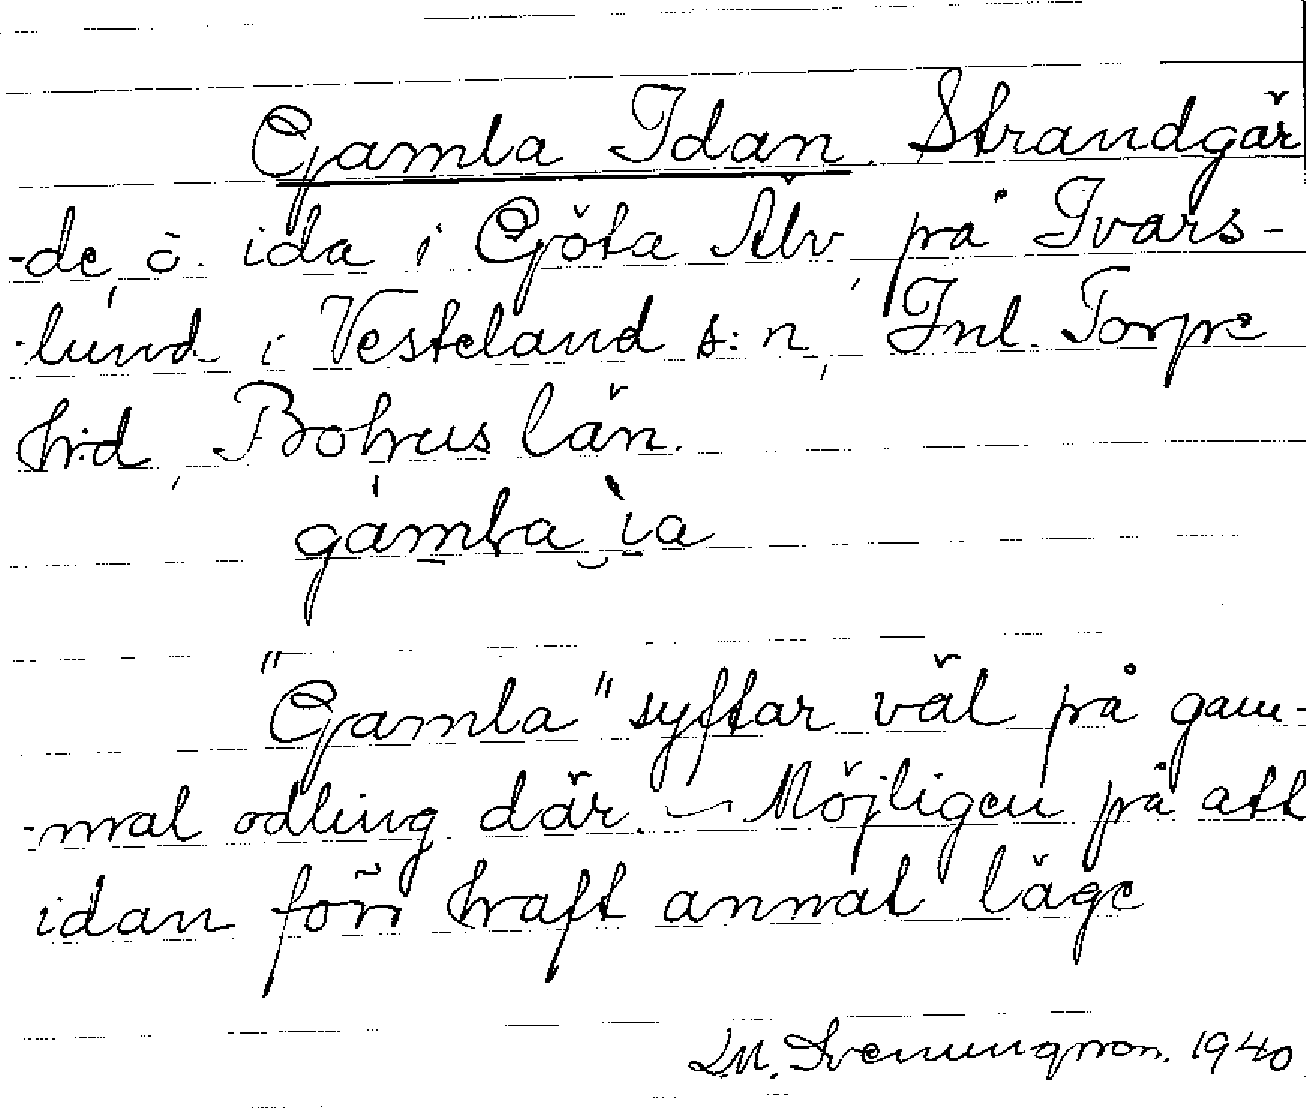 Gamla Idan. Strandgär
-de, o. ida i Göta Älv, på Ivars-
-lund i Vesteland s:n, Inl. Torpe
hrd, Bohus län.
gámla ìa
"Gamla" syftar väl på gam-
-mal odling där. – Möjligen på att
idan förr haft annat läge
Svenungsson. 1940